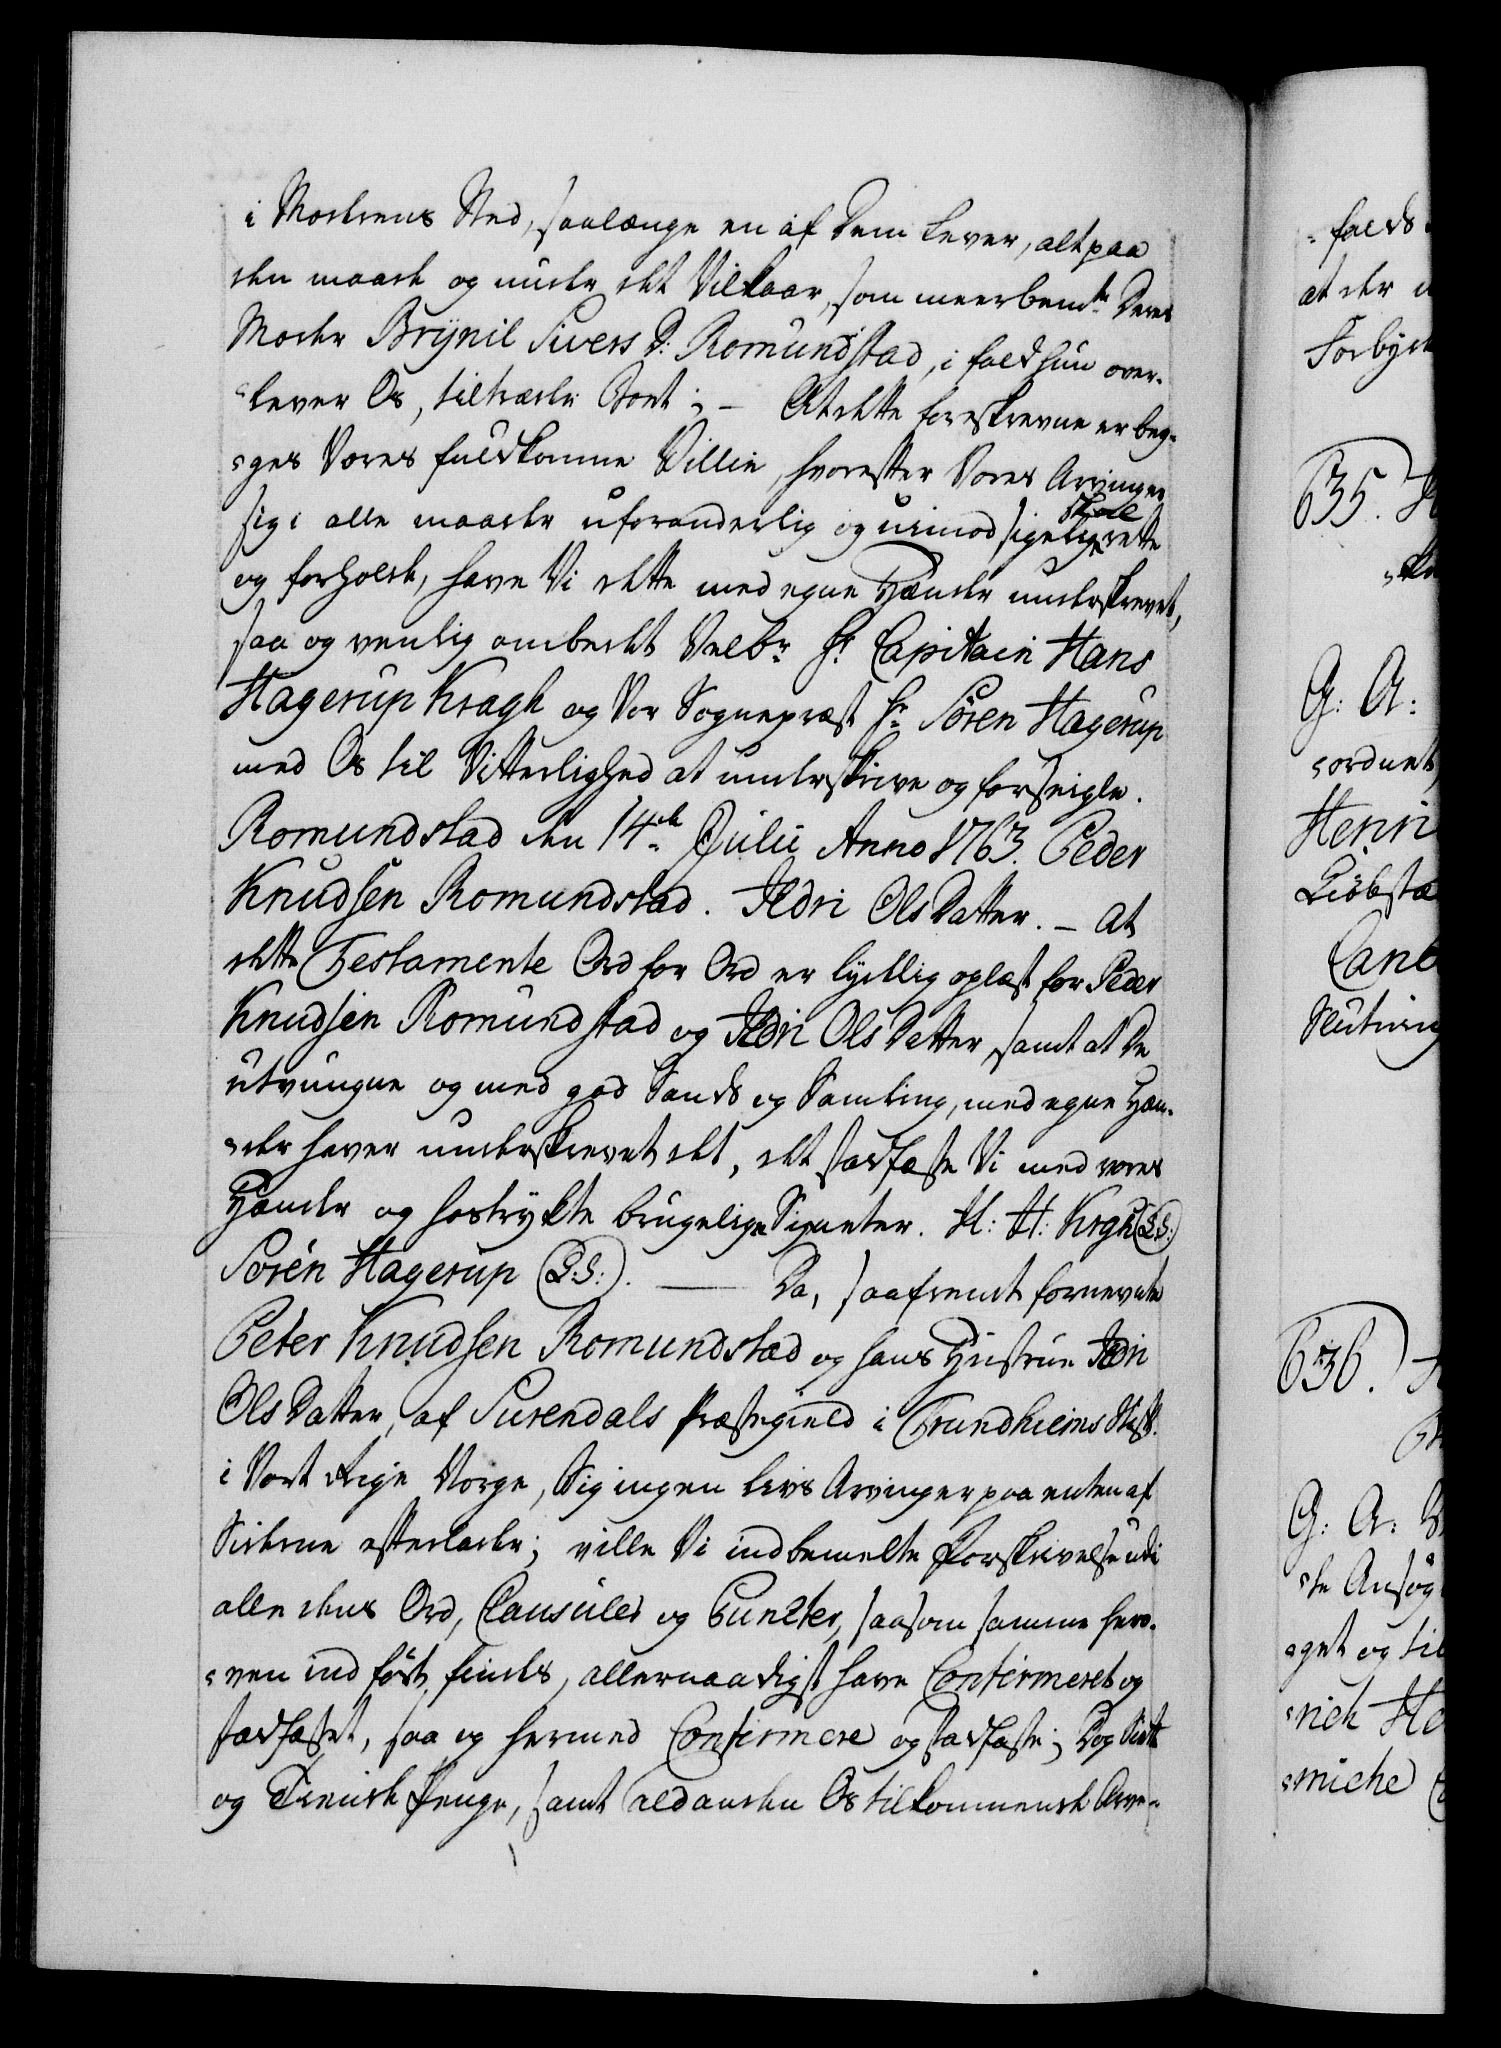 i Moderens Sted, saalænge en af Dem Lever, alt paa
den maade og under det Vilkaar, som meerbemte Deres
Moder Brÿnil Sivers D: Romundstad, i fald hun over-
lever Os, tiltræder Boet; - At dette foreskrevne er beg-
ges Vores fuldkomne Villie, hvorefter Vores Arvinger
skal
sig i alle maader uforanderlig og uimodsigelig rette
og forholde, have Vi dette med egne Hænder underskrevet,
saa og venlig ombedet Velbr Hr Capitain Hans
Hagerup Kragh og Vor Sognepræst Hr Sören Hagerup
med Os til Vitterlighed at underskrive og forseigle.
Romundstad den 14de Julii Anno 1763. Peder
Knudsen Romundstad. Ildri Ols Datter. - At
dette Testamente Ord for Ord er lydelig oplæst for Peder
Knudsen Romundstad og Ildri Ols Datter, samt at De
utvungne og med god Sands og Samling, med egne Hæn-
der haver underskrevet det, det stadfæste Vi med vores
Hænder og hostrykte brugelige Signeter. H: H: Krgh (L:S:)
Sören Hagerup (L:S:). Da, saafremt fornevnte
Peter Knudsen Romundstad og hans Hustrue Ildri
Ols Datter, af Surendals Præstegield i Trundhiems Stift
i Vort Rige Norge, Sig ingen Livs Arvinger paa enten af
Siderne efterlader; ville Vi indbemelte Forskrivelse udi
alle dens Ord, Clausuler og Puncter, saasom samme her o-
ven indført findes, allernaadigst have Confirmeret og
stadfæstet, saa og hermed Confirmere og stadfæste; Dog Siette
og Tiende Penge, samt ald anden Os tilkommende Arve-
falds
at der
635.
G: A:
ordnet,
Henri
636.
G: A:
get og til
rich He
miche